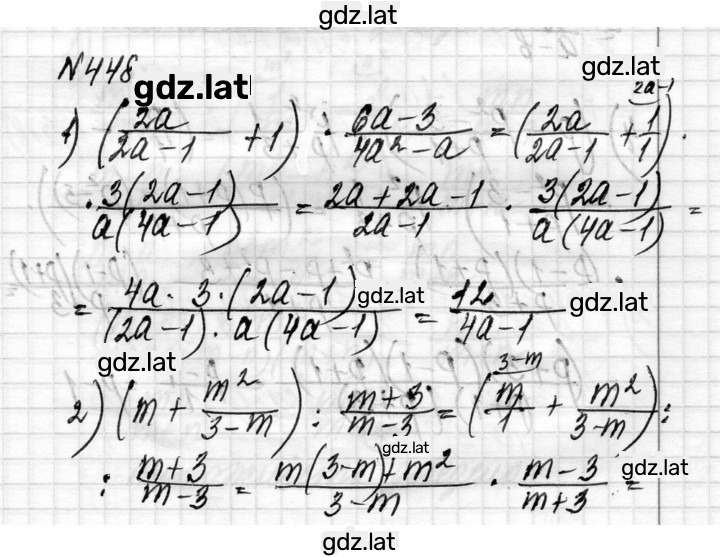 gdz.lat
N448
gdz.lat
gdz.lat
1) (2a/(2a-1) + 1) · (6a-3)/(4a²-a) = (2a/(2a-1) + 1/1 ^(2a-1)) ·
· 3(2a-1)/(a(4a-1)) = (2a+2a-1)/(2a-1) · 3(2a-1)/(a(4a-1)) =
= (4a·3·(2a-1))/((2a-1)·a(4a-1)) = 12/(4a-1)
gdz.lat
gdz.lat
gdz.lat
2) (m + m²/(3-m)) : (m+3)/(m-3) = (m/1 ^(3-m) + m²/(3-m)) :
gdz.lat
: (m+3)/(m-3) = (m(3-m)+m²)/(3-m) · (m-3)/(m+3) =
gdz.lat
gdz.lat